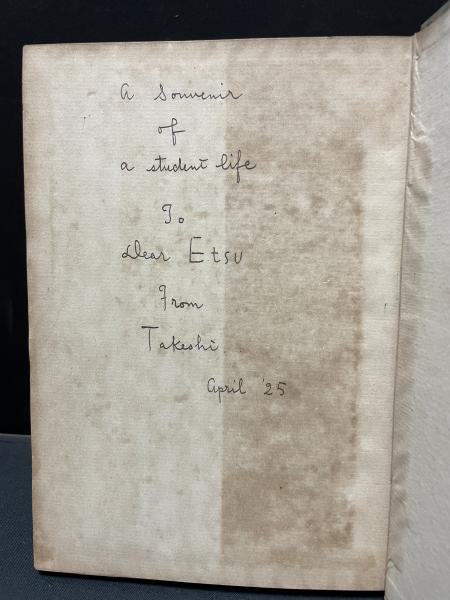 A Souvenir
of
a student life
To
Dear Etsu
From
Takeshi
April '25